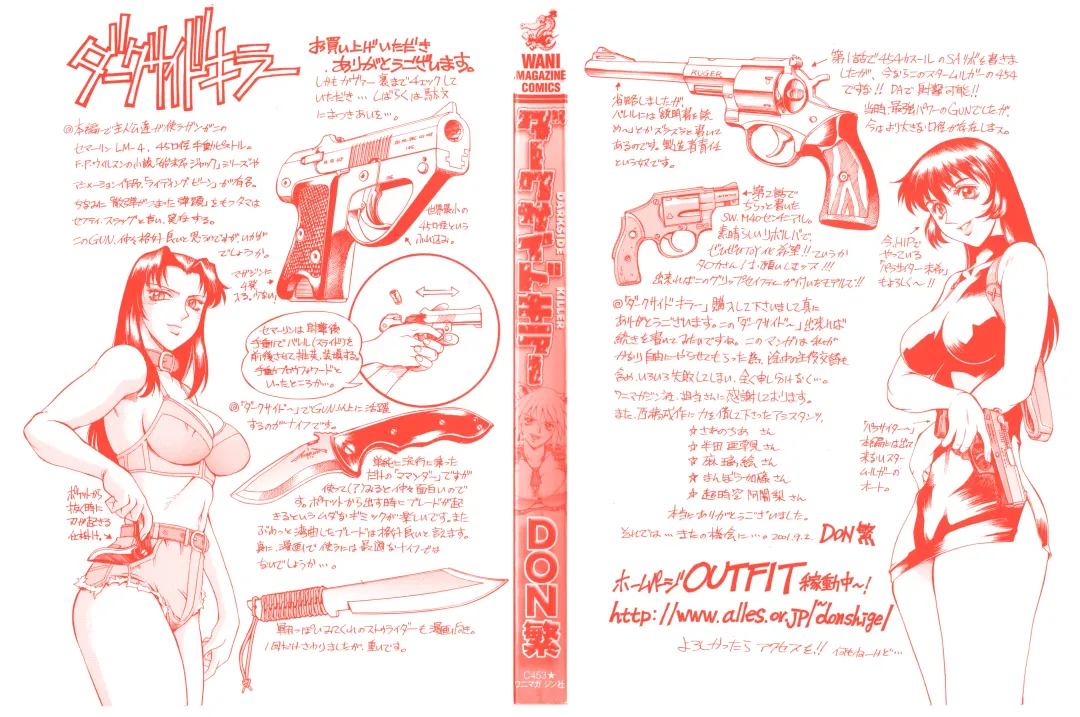 ダークサイドキラー
お買い上げいただき
ありがとうございます。
しかもカヴァー裏までチェックして
いただき…しばらくは駄文
におつきあいを…。
◎本編で主人公達が使うガンがこの
セマーリンLM-4，45口径手動ピストル。
F.P.ウィルスンの小説「始末屋ジャック」シリーズや
アニメーション作品「ライディングビーン」が有名。
ちなみに「散弾がつまった弾頭」をもつタマは
セフティ・スラッグと言い、実在する。
このGUN、仲々格好良いと思うのですがいかが
でしょうか。
マガジンに
4発
世界最小の
45口径という
ふれ込み。
セマーリンは射撃後
手動でバレル(スライド)を
前後させて排莢、装填する。
手動ブローフォワードと
いったところか…。
◎「ダークサイド〜」でGUN以上に活躍
するのがナイフです。
単純に流行に乗った
だけの「コマンダー」ですが
使って(?)みると仲々面白いので
す。ポケットから出す時にブレードが起
きるというムダなギミックが楽しいです。また
ぶわっと湾曲したブレードは格好良いと言えます。
真に、漫画で使うには最適なナイフでは
ないでしょうか…。
ポケットから
抜く時に
刃が起きる
仕掛け。
1回だけさわりましたが、重いです。
WANI
MAGAZINE
COMICS
ダークサイド・キラー
DARKSIDE KILLER
DON繁
C453★
ワニマガジン社
RUGER
第1話で454カスールのSAが〜と書きま
したが、今ならこのスタームルガーの454
ですな!! DAで射撃可能!!
当時、最強パワーのGUNでしたが、
今はより大きな口径が存在します。
省略しましたが、
バレルには「説明書を読
め〜」とかズラズラと書いて
あるのです。製造者責任
という奴です。
←第2話で
ちらっと書いた
SW.M40センチニアル。
素晴らしいリボルバで、
ぜひぜひTOY化希望!! というか
タナカさん!お願いしまッス!!!
出来ればこのグリップセイフティーが付いたモデルで!!
今、HIPで
やっている
もよろしく〜!!
◎「ダークサイドキラー」購入して下さいまして真に
ありがとうございます。この「ダークサイド〜」出来れば
続きを書いてみたいですね。このマンガはそれが
かなり自由にやらせてもらった為、途中の主役交替も
含め、いろいろ失敗してしまい、全く申し分けなく…。
ワニマガジン社、担当さんに感謝しております。
また、原稿作成に力を貸して下さったアシスタンツ、
☆さわのちあ さん
☆半田亜季見 さん
☆麻璃絵 さん
☆まんぼう加藤 さん
☆超時空阿闍梨 さん
本当にありがとうございました。
それでは…またの機会に…。2001.9.2. DON繁
本編には出て
来ないスター
ムルガーの
オート。
ホームページOUTFIT稼動中〜!
http://www.alles.or.jp/~donshige/
よろしかったら アクセスを!!